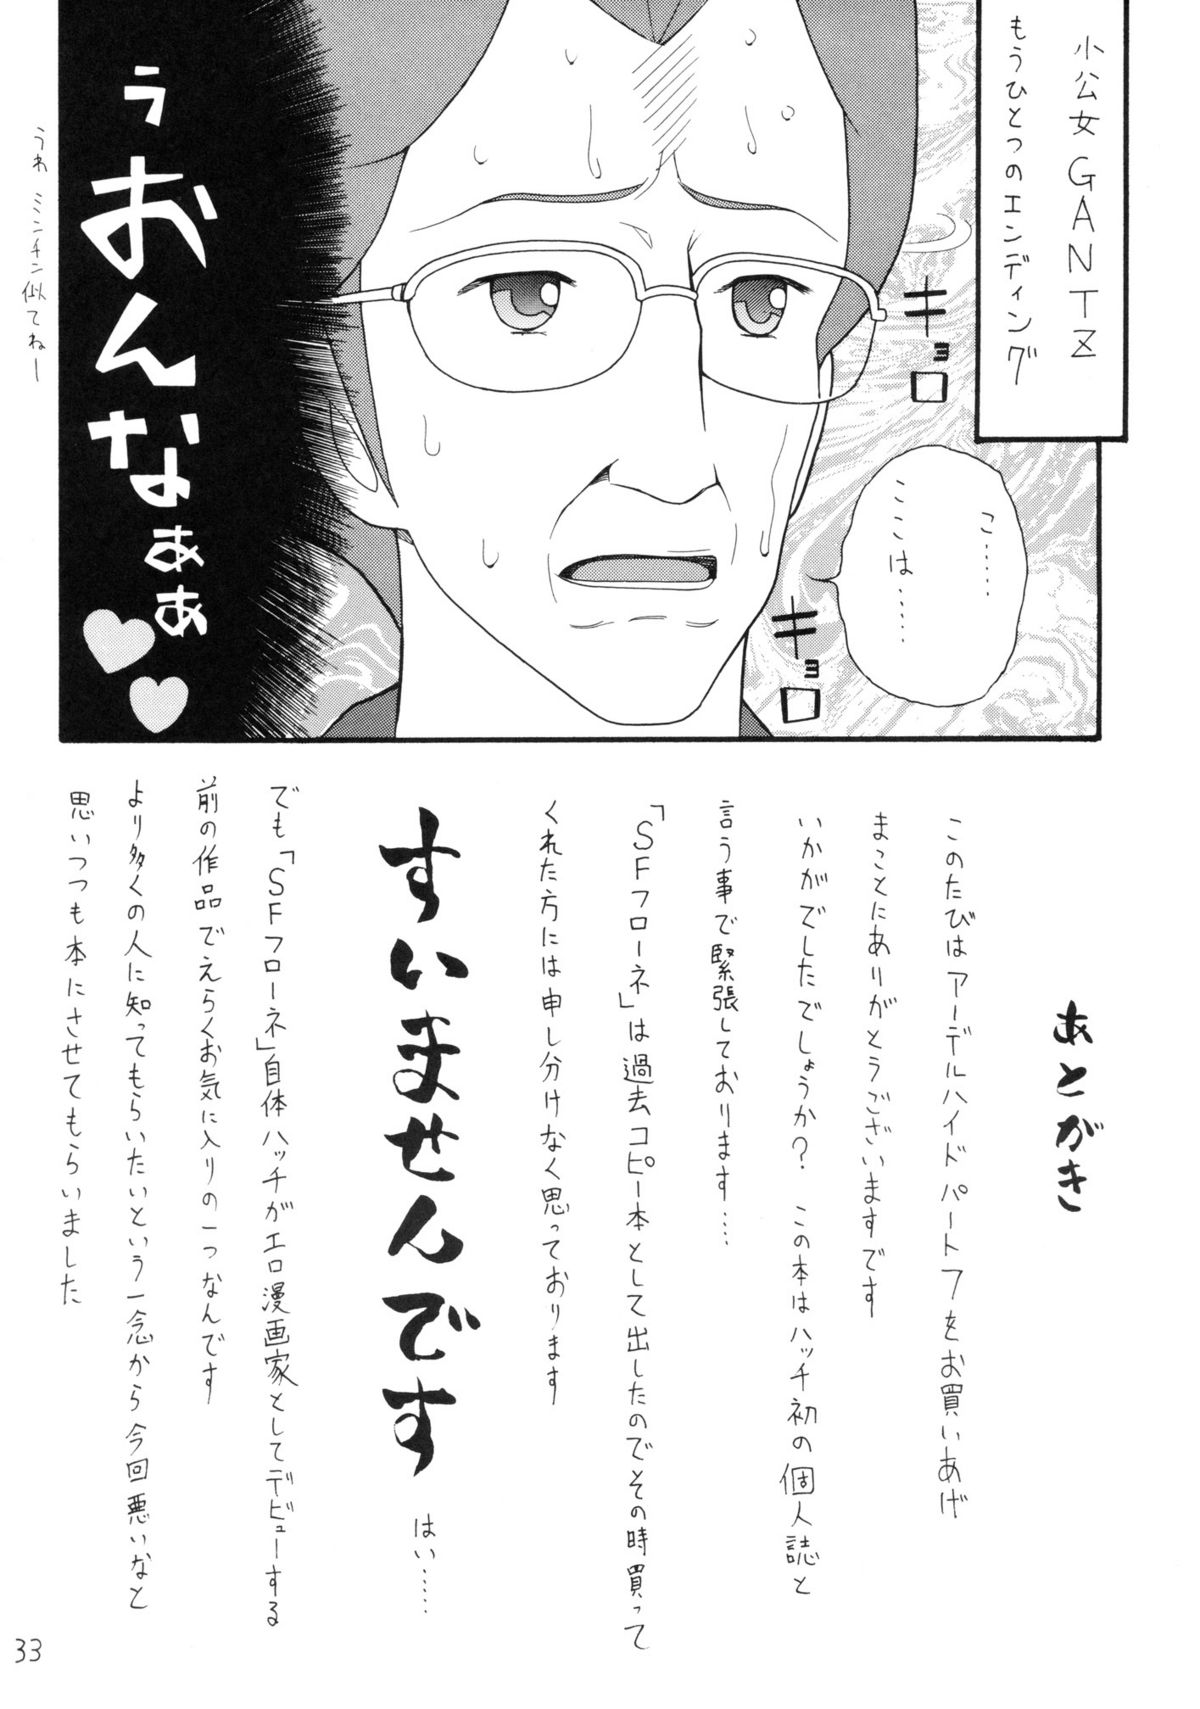 小公女GANTZ
もうひとつのエンディング
こ……
ここは……
キョロ
キョロ
うおんなぁぁ
うわ ミンチン似てねー
あとがき
このたびはアーデルハイドパート7をお買いあげ
まことにありがとうございますです
いかがでしたでしょうか? この本はハッチ初の個人誌と
言う事で緊張しております……
「SFフローネ」は過去コピー本として出したのでその時買って
くれた方には申し分けなく思っております
すいませんです はい……
でも「SFフローネ」自体ハッチがエロ漫画家としてデビューする
前の作品でえらくお気に入りの一つなんです
より多くの人に知ってもらいたいという一念から今回悪いなと
思いつつも本にさせてもらいました
33